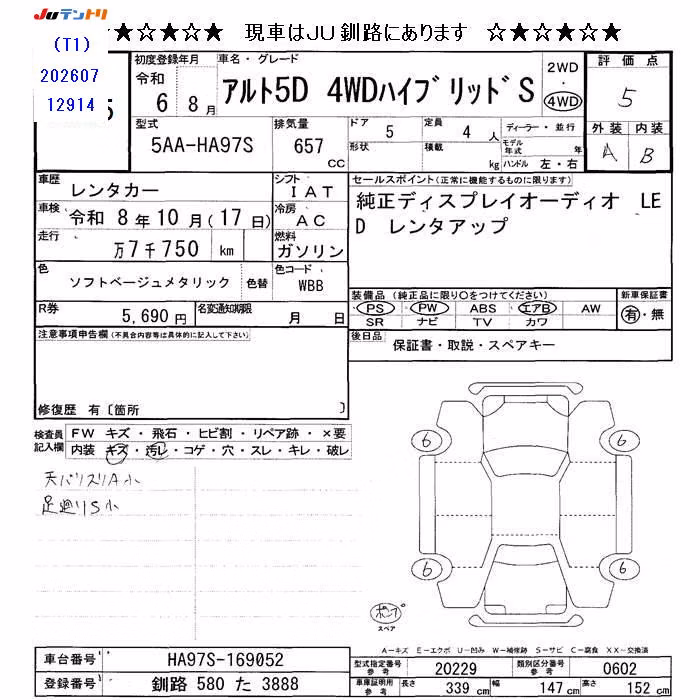 JUテントリ
★☆★☆★☆ 現車はJU釧路にあります ☆★☆★☆★
(T1)
202607
12914
初度登録年月
令和
6 8月
車名・グレード
アルト5D 4WDハイブリッドS
2WD
・
4WD
評価点
5
型式
5AA-HA97S
排気量
657
CC
ドア
5
定員
4 人
形状
積載
kg
ディーラー・並行
モデル年式
年
ハンドル 左・右
外装 内装
A B
車歴
レンタカー
シフト
IAT
セールスポイント(正常に機能するものに限ります)
純正ディスプレイオーディオ LE
D レンタアップ
車検
令和 8年10月(17日)
冷房
AC
走行
万7千750 km
燃料
ガソリン
色
ソフトベージュメタリック
色替
色コード
WBB
装備品(純正品に限り○をつけてください)
PS PW ABS エアB AW
SR ナビ TV カワ
新車保証書
有・無
R券
5,690円
名変通知期限
月 日
後日品
保証書・取説・スペアキー
注意事項申告欄(不具合内容等は具体的に記入して下さい)
修復歴 有〔箇所 〕
検査員記入欄
FW キズ・飛石・ヒビ割・リペア跡・×要
内装 キズ・汚レ・コゲ・穴・スレ・キレ・破レ
天バリスリA小
足廻りS小
6 6
6 6
スペア
A-キズ E-エクボ U-凹み W-補修跡 S-サビ C-腐食 XX-交換済
車台番号
HA97S-169052
型式指定番号 参考
20229
類別区分番号 参考
0602
登録番号
釧路 580 た 3888
車庫証明用 参考
長さ
339 cm
幅
147 cm
高さ
152 cm